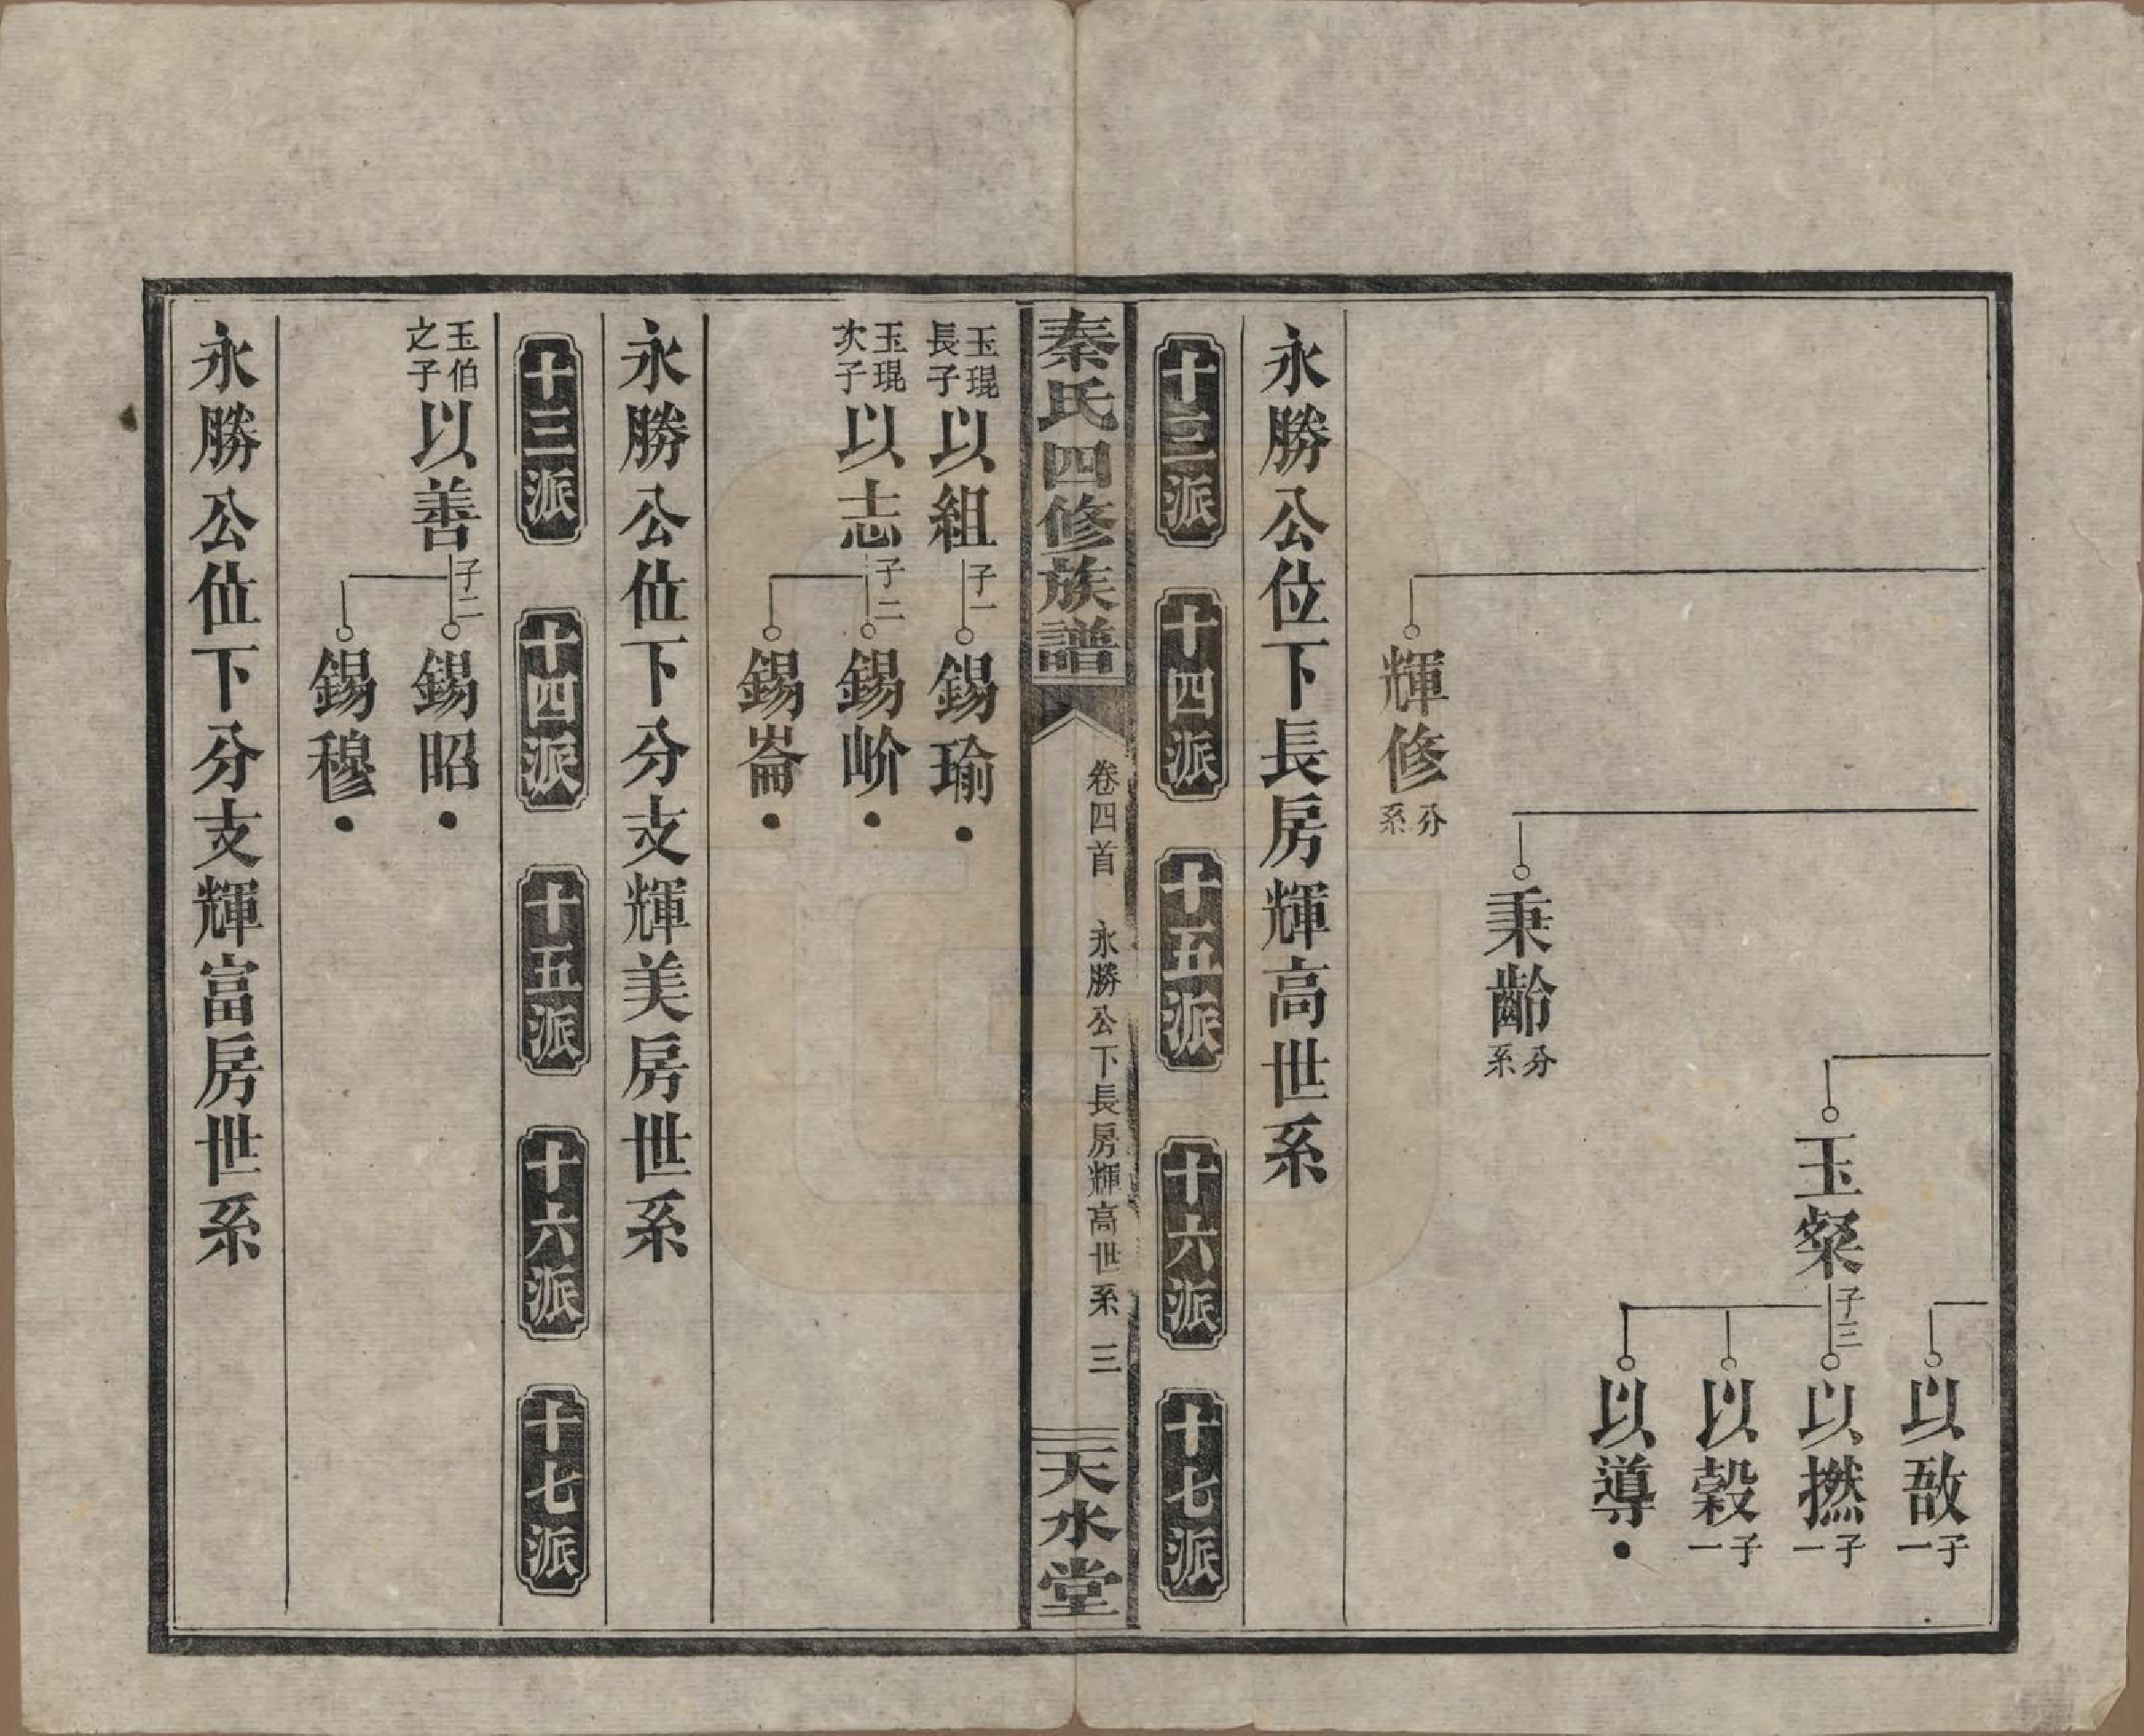 以敔 子一
玉粲 子三
以撚 子一
以穀 子一
以導
秉齡 分系
輝修 分系
永勝公位下長房輝高世系
十三派 十四派 十五派 十六派 十七派
秦氏四修族譜
卷四首 永勝公下長房輝高世系 三
天水堂
玉琨長子 以組 子一 錫瑜
玉琨次子 以志 子二 錫岕
錫崙
永勝公位下分支輝美房世系
十三派 十四派 十五派 十六派 十七派
玉伯之子 以善 子二 錫昭
錫穆
永勝公位下分支輝富房世系